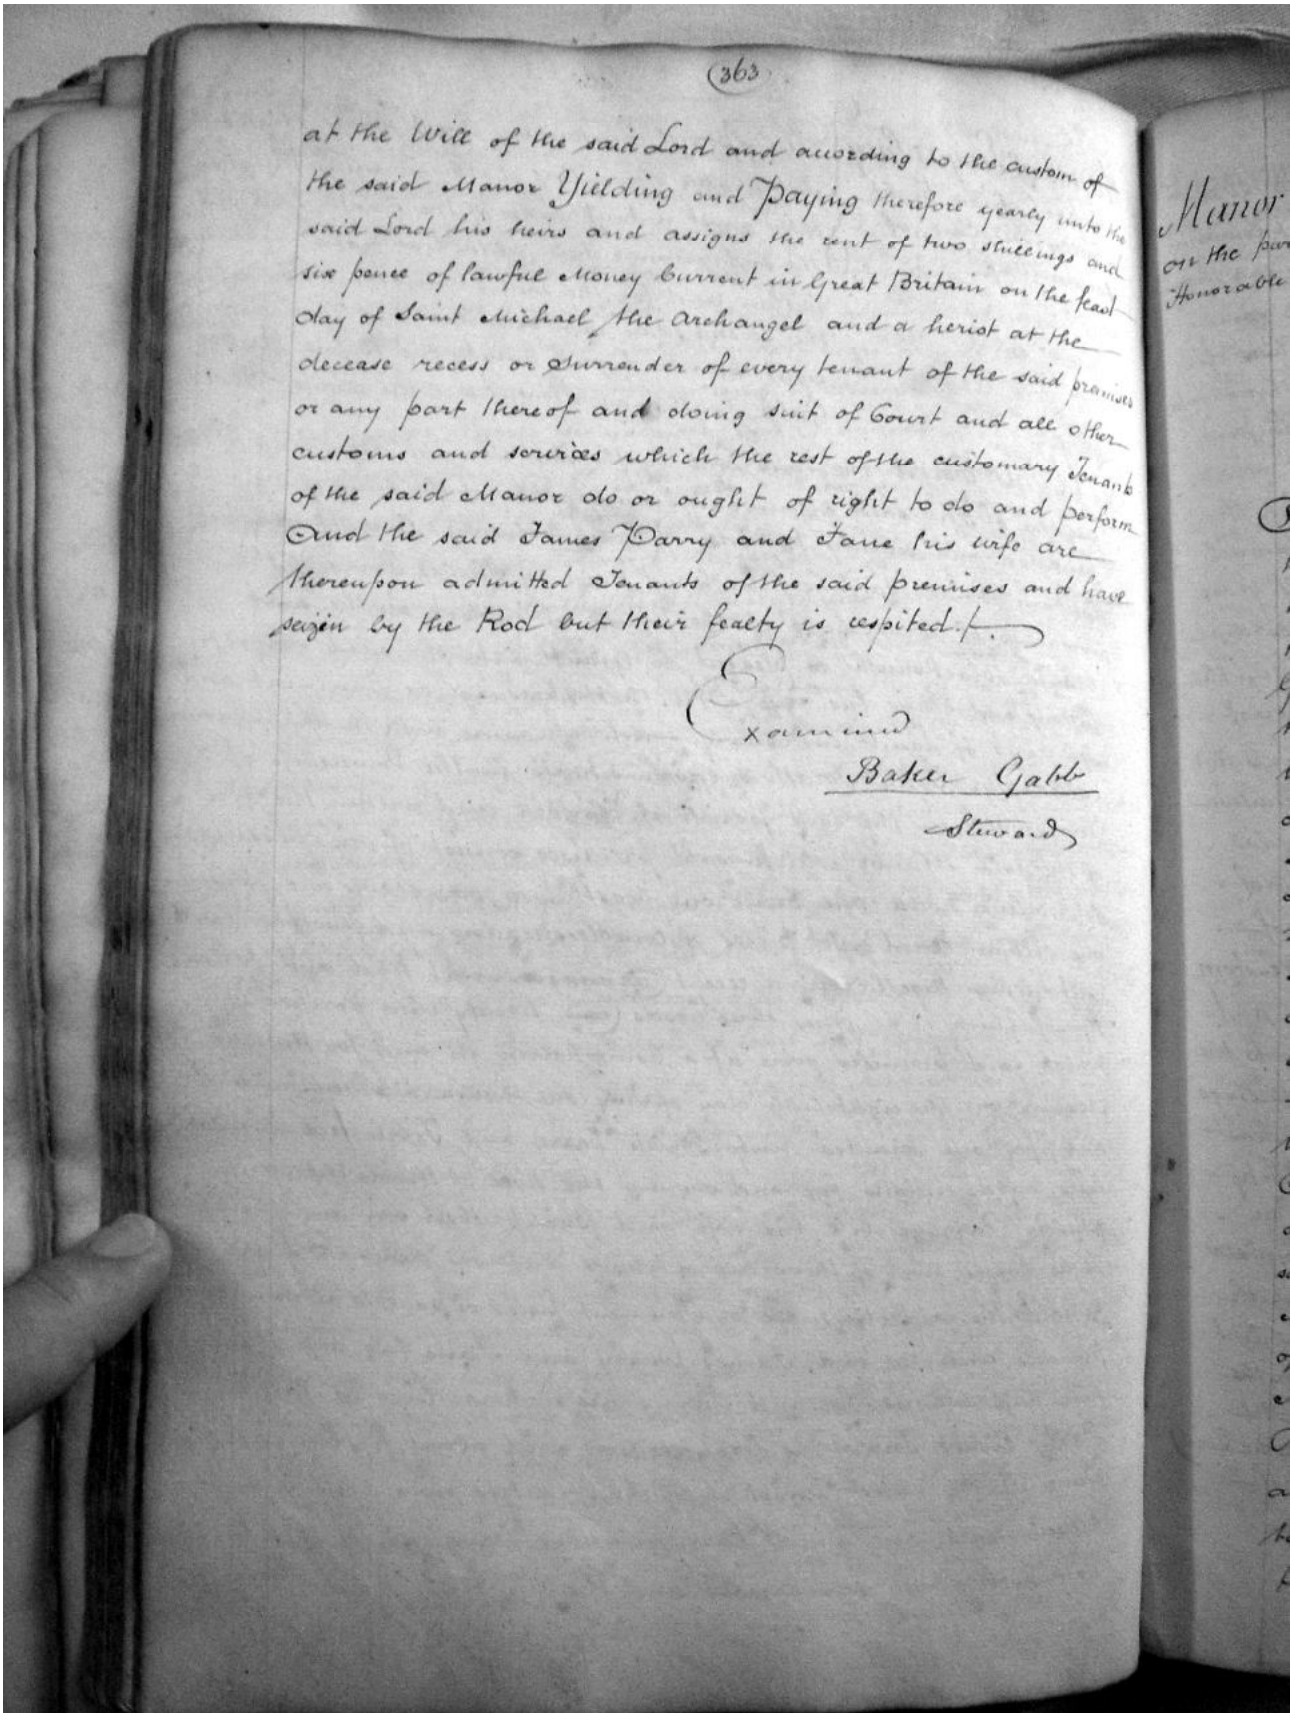 363
at the Will of the said Lord and according to the custom of
the said Manor Yielding and Paying therefore yearly unto the
said Lord his heirs and assigns the rent of two shillings and
six pence of lawful Money Current in Great Britain on the feast
day of Saint Michael the Archangel and a heriot at the
decease recess or Surrender of every tenant of the said premises
or any part thereof and doing suit of Court and all other
customs and services which the rest of the customary Tenants
of the said Manor do or ought of right to do and perform
And the said James Parry and Jane his wife are
thereupon admitted Tenants of the said premises and have
seizin by the Rod but their fealty is respited.
Examined
Baker Gabb
Steward
Manor
on the
Honorable